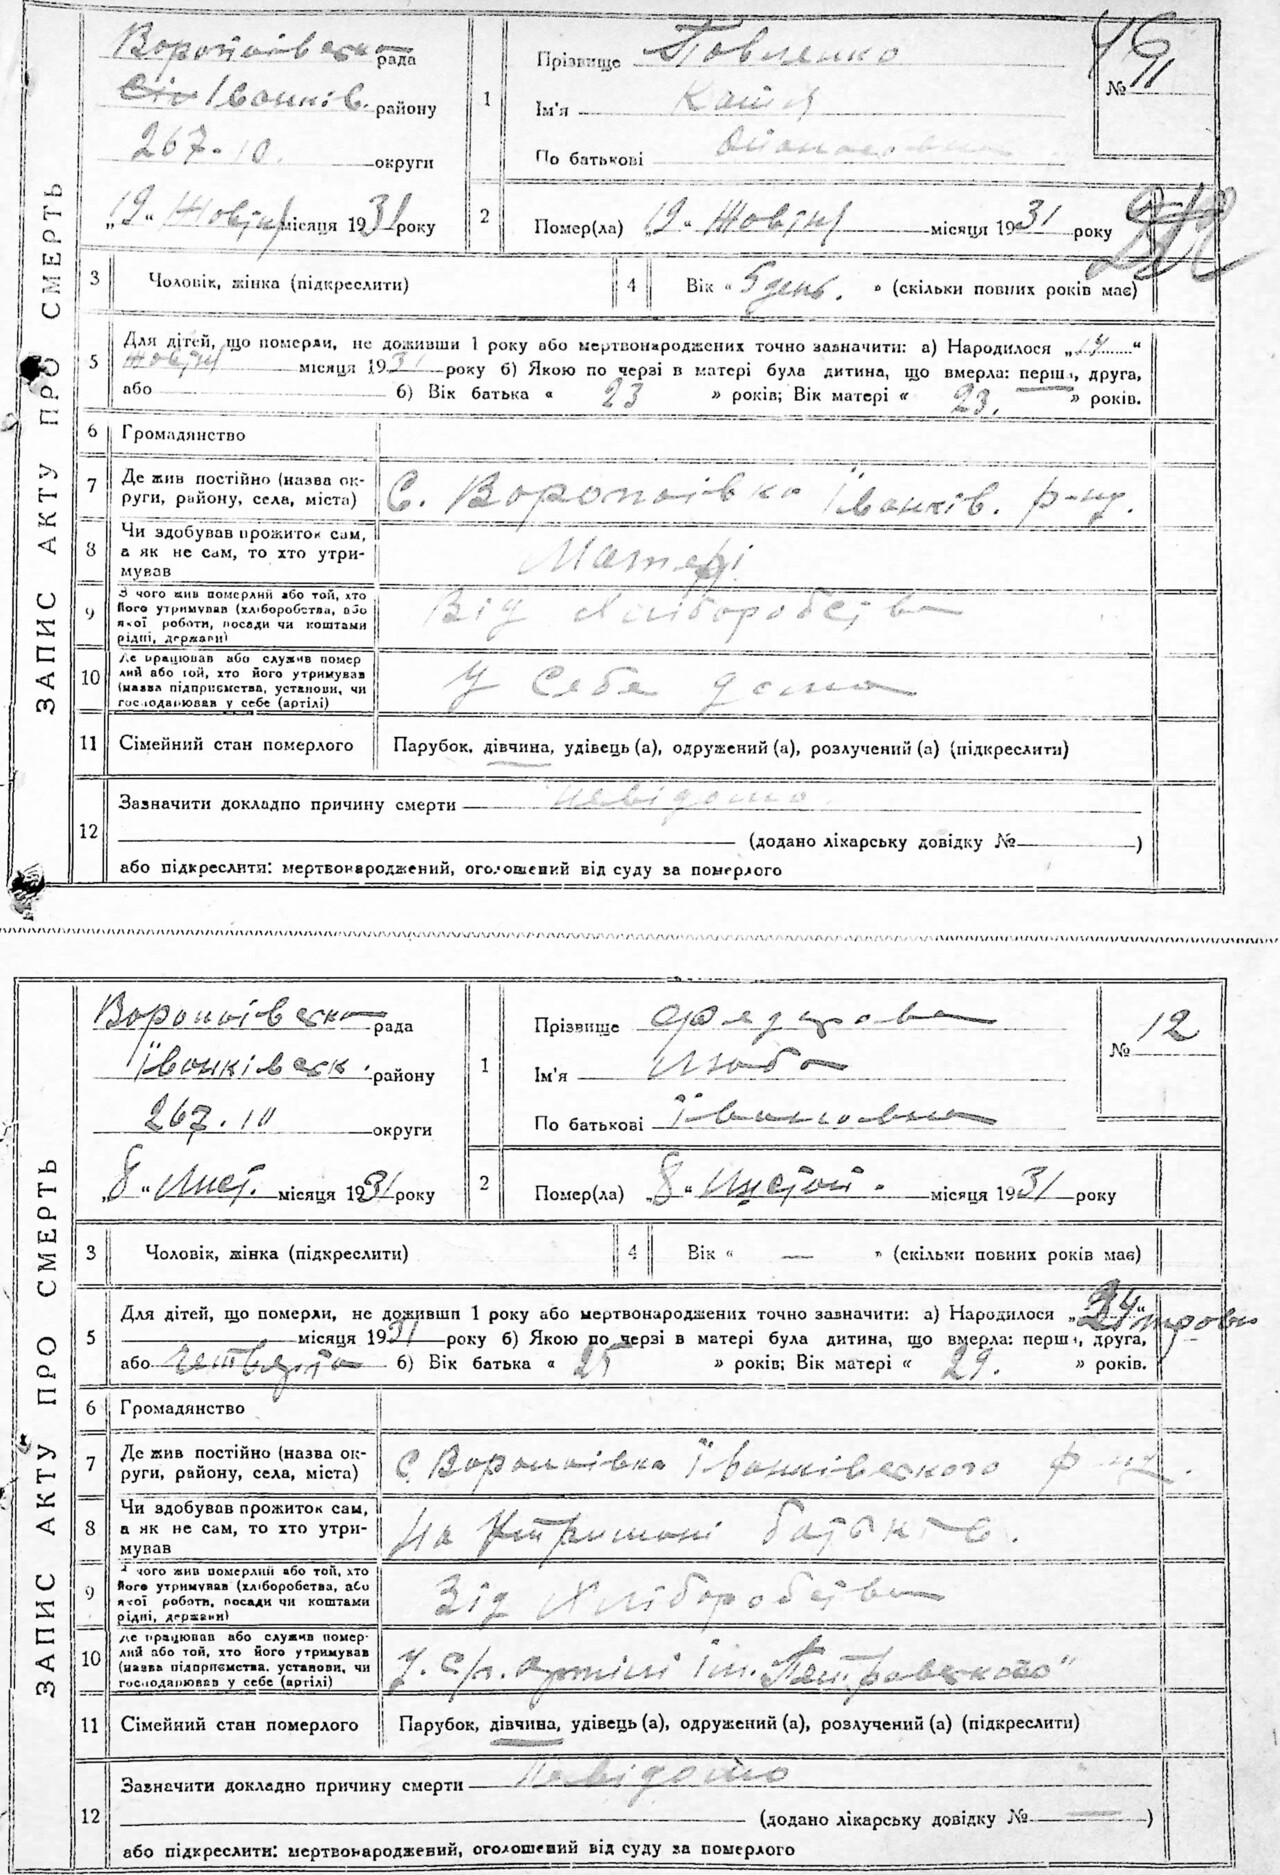 ЗАПИС АКТУ ПРО СМЕРТЬ
Воропаївська рада
Іванків. району
267-10. округи
„19“ Жовтня місяця 1931 року
1
Прізвище Павленко
Ім'я Катя
По батькові
№ 11
2
Помер(ла) „19“ Жовтня місяця 1931 року
3
Чоловік, жінка (підкреслити)
4
Вік « 5 день. » (скільки повних років має)
5
Для дітей, що померли, не доживши 1 року або мертвонароджених точно зазначити: а) Народилося „14“
Жовтня місяця 1931 року б) Якою по черзі в матері була дитина, що вмерла: перша, друга,
або б) Вік батька « 23 » років; Вік матері « 23. » років.
6
Громадянство
7
Де жив постійно (назва округи, району, села, міста)
С. Воропаївка Іванків. р-ну.
8
Чи здобував прожиток сам,
а як не сам, то хто утри-
мував
Матері
9
З чого жив померлий або той, хто
його утримував (хліборобства, або
якої роботи, посади чи коштами
рідні, держави)
Від Хліборобства
10
Де працював або служив помер
лий або той, хто його утримував
(назва підприємства, установи, чи
господарював у себе (артілі)
У себе дома
11
Сімейний стан померлого
Парубок, дівчина, удівець (а), одружений (а), розлучений (а) (підкреслити)
12
Зазначити докладно причину смерти невідомо
(додано лікарську довідку № )
або підкреслити: мертвонароджений, оголошений від суду за померлого
ЗАПИС АКТУ ПРО СМЕРТЬ
Воропаївська рада
Іванківськ. району
267-10 округи
„8“ Лист. місяця 1931 року
1
Прізвище Федорова
Ім'я Люба
По батькові Івановна
№ 12
2
Помер(ла) „8“ Листоп. місяця 1931 року
3
Чоловік, жінка (підкреслити)
4
Вік « — » (скільки повних років має)
5
Для дітей, що померли, не доживши 1 року або мертвонароджених точно зазначити: а) Народилося „24“
місяця 1931 року б) Якою по черзі в матері була дитина, що вмерла: перша, друга,
або четверта б) Вік батька « 25 » років; Вік матері « 29. » років.
6
Громадянство
7
Де жив постійно (назва ок-
руги, району, села, міста)
С. Воропаївка Іванківського р-ну.
8
Чи здобував прожиток сам,
а як не сам, то хто утри-
мував
На Утримані батьків.
9
З чого жив померлий або той, хто
його утримував (хліборобства, або
якої роботи, посади чи коштами
рідні, держави)
Від Хліборобства
10
Де працював або служив помер-
лий або той, хто його утримував
(назва підприємства, установи, чи
господарював у себе (артілі)
У. с/г. артілі ім. „Петровського“
11
Сімейний стан померлого
Парубок, дівчина, удівець (а), одружений (а), розлучений (а) (підкреслити)
12
Зазначити докладно причину смерти Невідомо
(додано лікарську довідку № — )
або підкреслити: мертвонароджений, оголошений від суду за померлого